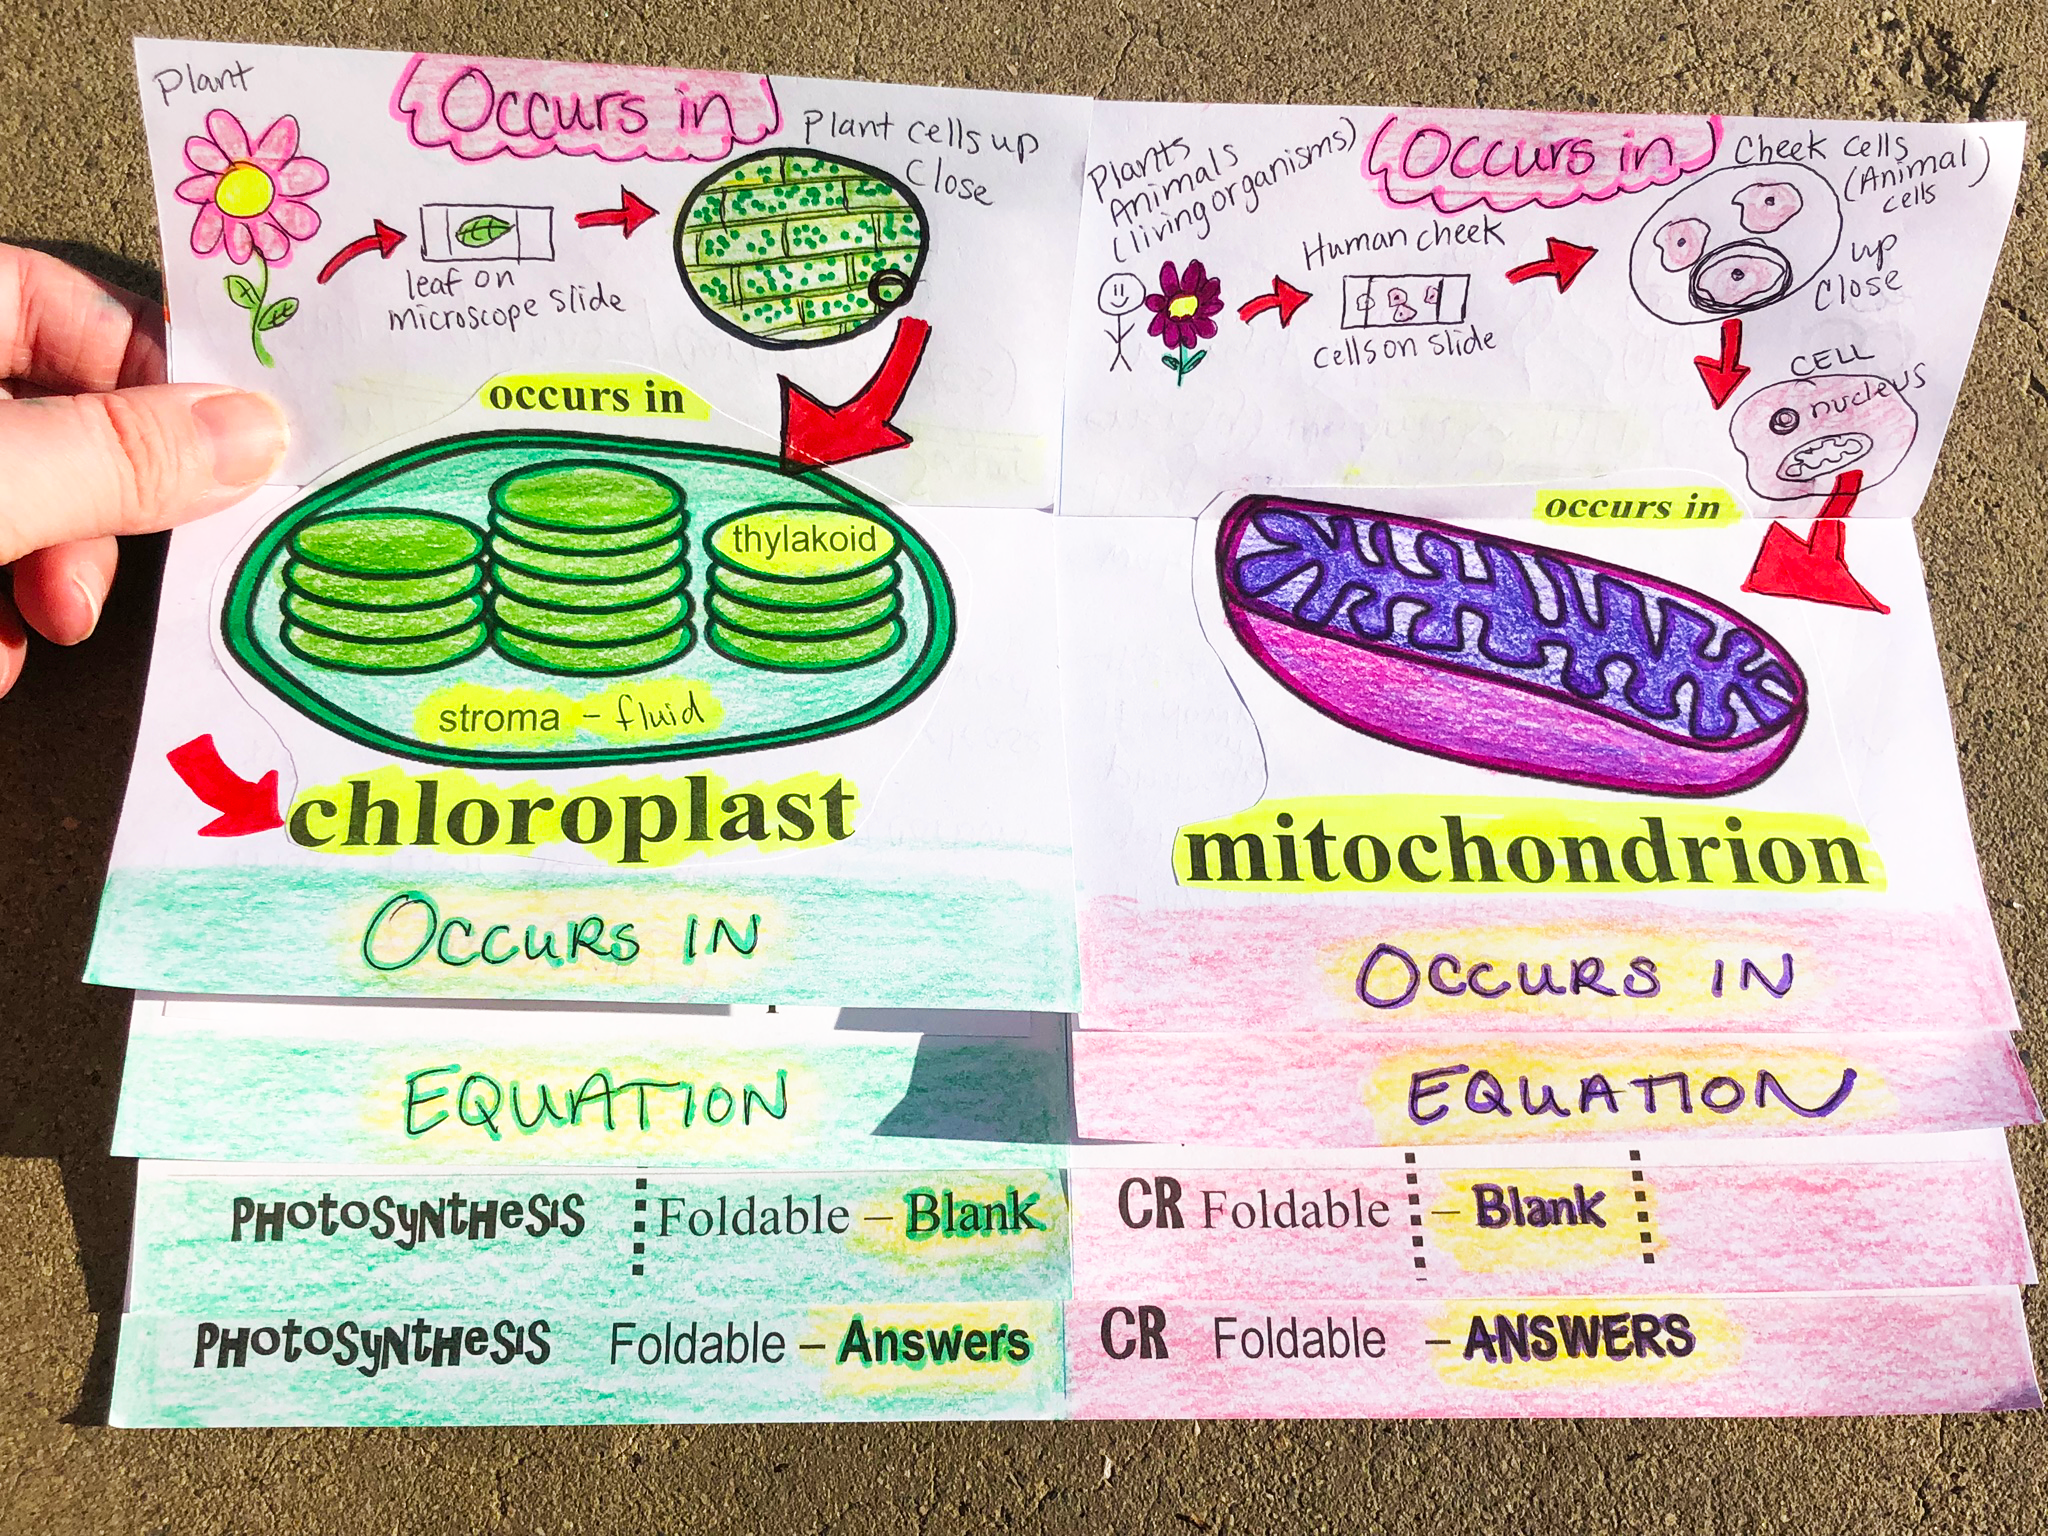 Plant
Occurs in
Plant cells up
Close
leaf on
microscope slide
occurs in
thylakoid
stroma - fluid
chloroplast
OCCURS IN
EQUATION
PHotoSyNtHeSIS Foldable – Blank
PHotoSyNtHeSIS Foldable – Answers
Plants
Animals
(living organisms)
Occurs in
Cheek cells
(Animal)
cells
up
Close
Human cheek
cells on slide
CELL
nucleus
occurs in
mitochondrion
OCCURS IN
EQUATION
CR Foldable – Blank
CR Foldable – ANSWERS